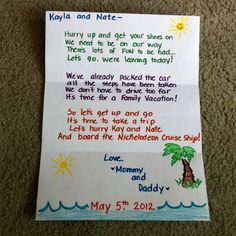 Kayla and Nate-
Hurry up and get your shoes on
We need to be on our way
There's lots of FUN to be had...
Let's go. we're leaving today!
We've already packed the car
all the steps have been taken
We don't have to drive too far
It's time for a Family Vacation!
So let's get up and go
It's time to take a trip
Let's hurry Kay and Nate
And board the Nickelodeon Cruise Ship!
Love,
Mommy
and
Daddy
May 5th, 2012